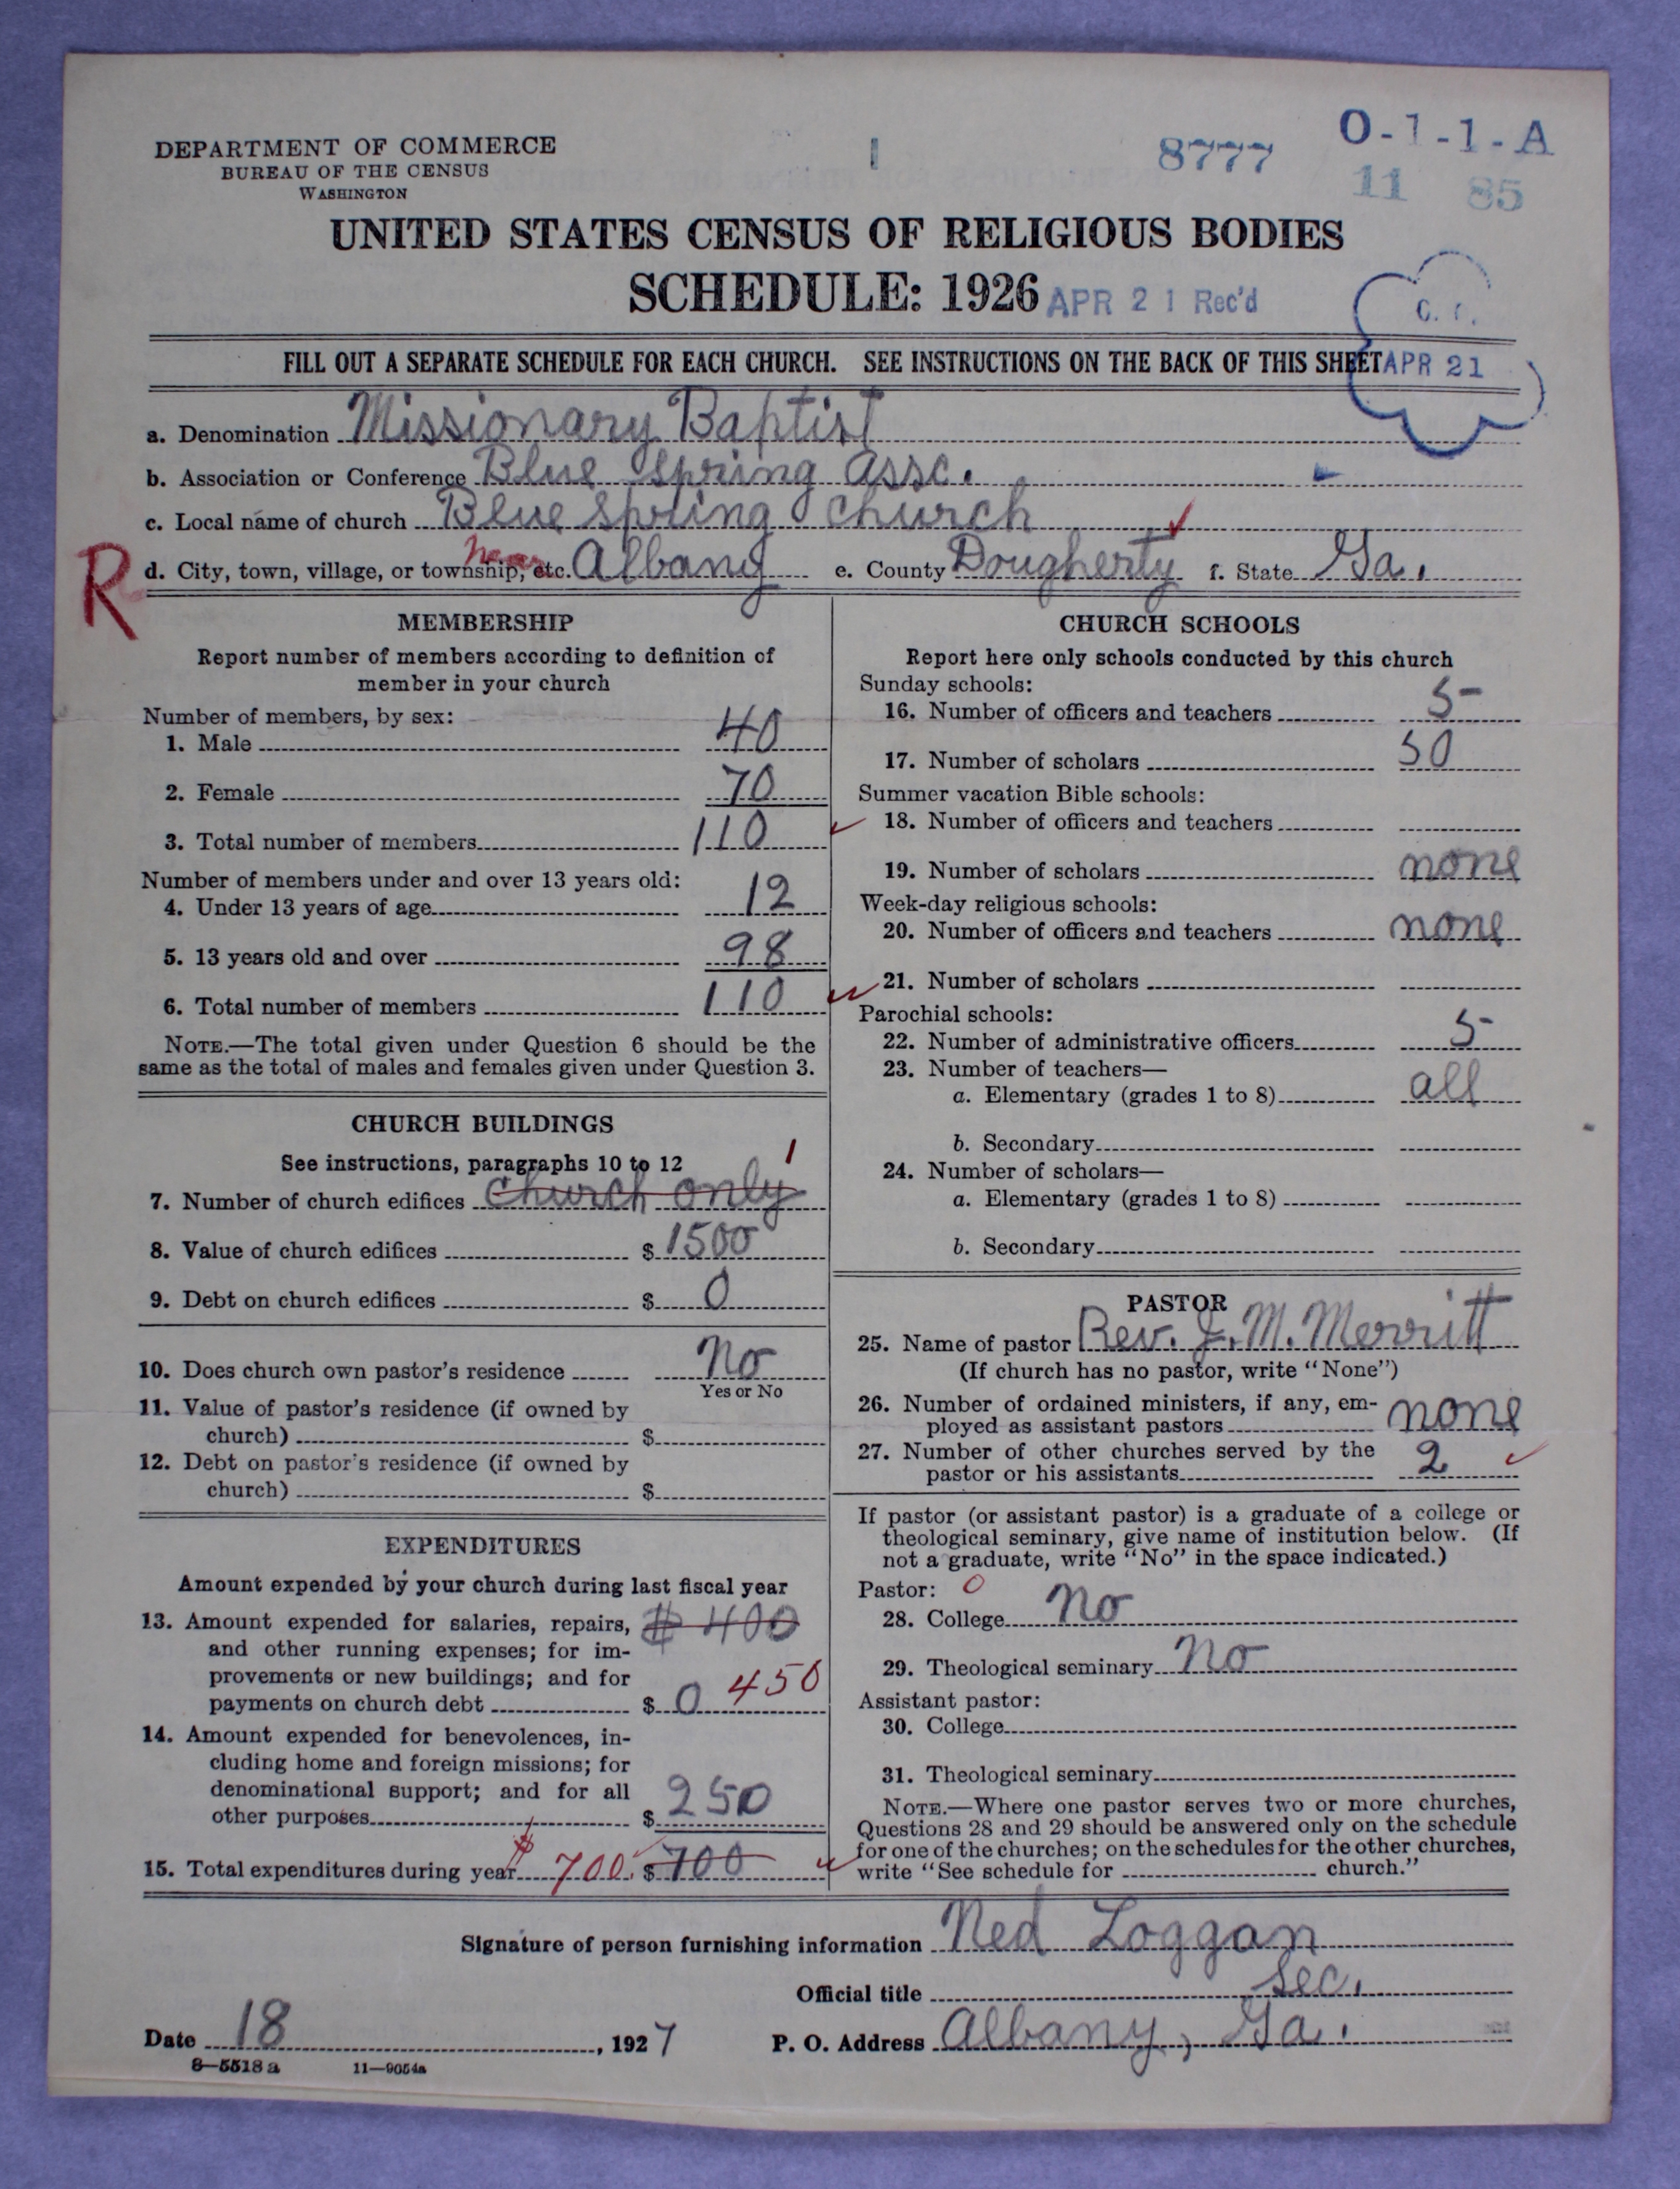 DEPARTMENT OF COMMERCE
BUREAU OF THE CENSUS
WASHINGTON
8777
O-1-1-A
11 85
UNITED STATES CENSUS OF RELIGIOUS BODIES
SCHEDULE: 1926
APR 21 Rec'd
FILL OUT A SEPARATE SCHEDULE FOR EACH CHURCH. SEE INSTRUCTIONS ON THE BACK OF THIS SHEET
APR 21
a. Denomination Missionary Baptist
b. Association or Conference Blue Spring Assc.
c. Local name of church Blue Spring Church
R
d. City, town, village, or township, etc. near Albany e. County Dougherty f. State Ga.
MEMBERSHIP
Report number of members according to definition of
member in your church
Number of members, by sex:
1. Male 40
2. Female 70
3. Total number of members 110
Number of members under and over 13 years old:
4. Under 13 years of age 12
5. 13 years old and over 98
6. Total number of members 110
NOTE.—The total given under Question 6 should be the
same as the total of males and females given under Question 3.
CHURCH BUILDINGS
See instructions, paragraphs 10 to 12
7. Number of church edifices church only 1
8. Value of church edifices $ 1500
9. Debt on church edifices $ 0
10. Does church own pastor's residence no
Yes or No
11. Value of pastor's residence (if owned by
church) $
12. Debt on pastor's residence (if owned by
church) $
EXPENDITURES
Amount expended by your church during last fiscal year
13. Amount expended for salaries, repairs, $ 400
and other running expenses; for im-
provements or new buildings; and for
payments on church debt $ 0 450
14. Amount expended for benevolences, in-
cluding home and foreign missions; for
denominational support; and for all
other purposes $ 250
15. Total expenditures during year $ 700 $ 700
CHURCH SCHOOLS
Report here only schools conducted by this church
Sunday schools:
16. Number of officers and teachers 5
17. Number of scholars 50
Summer vacation Bible schools:
18. Number of officers and teachers
19. Number of scholars none
Week-day religious schools:
20. Number of officers and teachers none
21. Number of scholars
Parochial schools:
22. Number of administrative officers 5
23. Number of teachers—
a. Elementary (grades 1 to 8) all
b. Secondary
24. Number of scholars—
a. Elementary (grades 1 to 8)
b. Secondary
PASTOR
25. Name of pastor Rev. J. M. Merritt
(If church has no pastor, write "None")
26. Number of ordained ministers, if any, em-
ployed as assistant pastors none
27. Number of other churches served by the
pastor or his assistants 2
If pastor (or assistant pastor) is a graduate of a college or
theological seminary, give name of institution below. (If
not a graduate, write "No" in the space indicated.)
Pastor: 0
28. College no
29. Theological seminary no
Assistant pastor:
30. College
31. Theological seminary
NOTE.—Where one pastor serves two or more churches,
Questions 28 and 29 should be answered only on the schedule
for one of the churches; on the schedules for the other churches,
write "See schedule for church."
Signature of person furnishing information Ned Loggan
Official title Sec.
Date 18, 1927 P. O. Address Albany, Ga.
8—5518a 11—9054a